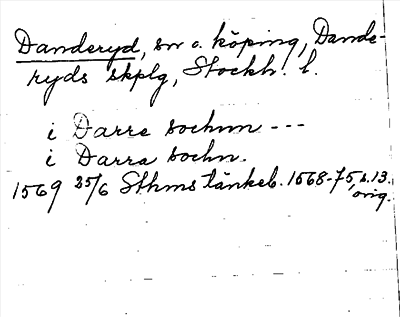 Danderyd, sn o. köping, Dande-
ryds skplg, Stockh. l.
i Darre sochnn ---
i Darra sochn.
1569 25/6 Sthms tänkeb. 1568-75, s. 13.
orig.